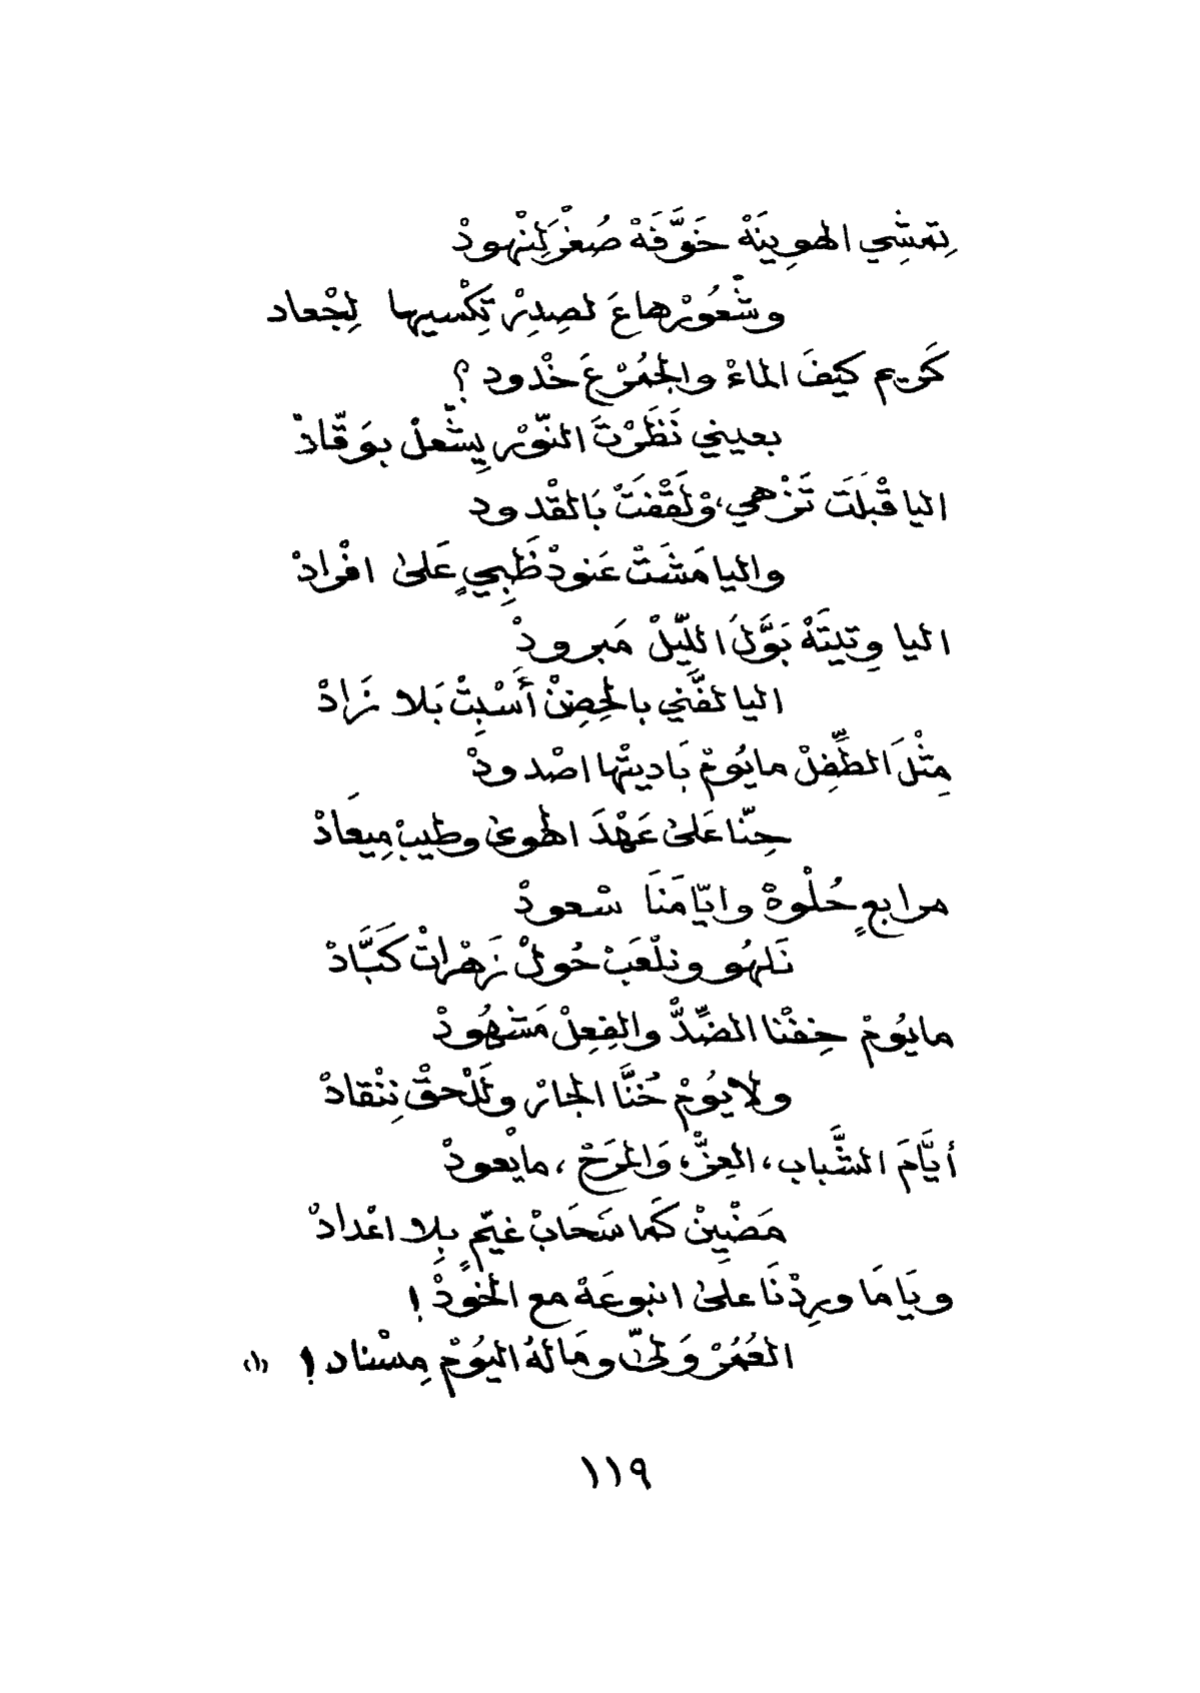 تِمشِي الهوِينَهْ خَوَّفَهْ صُغْرَلِنْهودْ
وشّعُورْها عَ لصِدِرْ تِكْسيها لِجْعاد
كَريم كيفَ الماءْ والجمُرْ عَ خْدود ؟
بعيني نَظَرْتَ النّوْر يِشّعلْ بوَقّادْ
اليا قْبلَتَ تَزْهي، وْلَقْفَتْ بَالقْدود
واليا مَشَتْ عَنودْ ظَبِيٍ عَلىٰ افْرادْ
اليا وِتيتَهْ بَوَّلَ اللِّيلْ مَبرودْ
اليا لفَّني بالحِضِنْ أَسْبِتْ بَلا زَادْ
مِثْلَ الطِّفِلْ مايُومْ بَاديتْها اصْدودْ
حِنّا عَلىٰ عَهْدَ الهوىٰ وطيبْ مِيعَادْ
مرابعٍ حُلْوهْ وايّامَنَا سْعودْ
نَلهُو ونلْعَبْ حُولْ زَهْراتْ كَبَّادْ
مايُومْ خِفْنا الضِّدّْ والفِعِلْ مَشْهُودْ
ولايُومْ خُنَّا الجارْ ولَلْحقْ نِنْقادْ
أيَّامَ الشَّباب، العِزّْ، وَالمرَحْ، مايْعودْ
مَضْيِنْ كَما سَحَابْ غيّمٍ بِلا اعْدادْ
ويَامَا ورِدْنَا علىٰ انبوعَهْ مع الخودْ !
العُمُرْ وَلّىٰ ومَالهُ اليُومْ مِسْناد ! (١)
١١٩